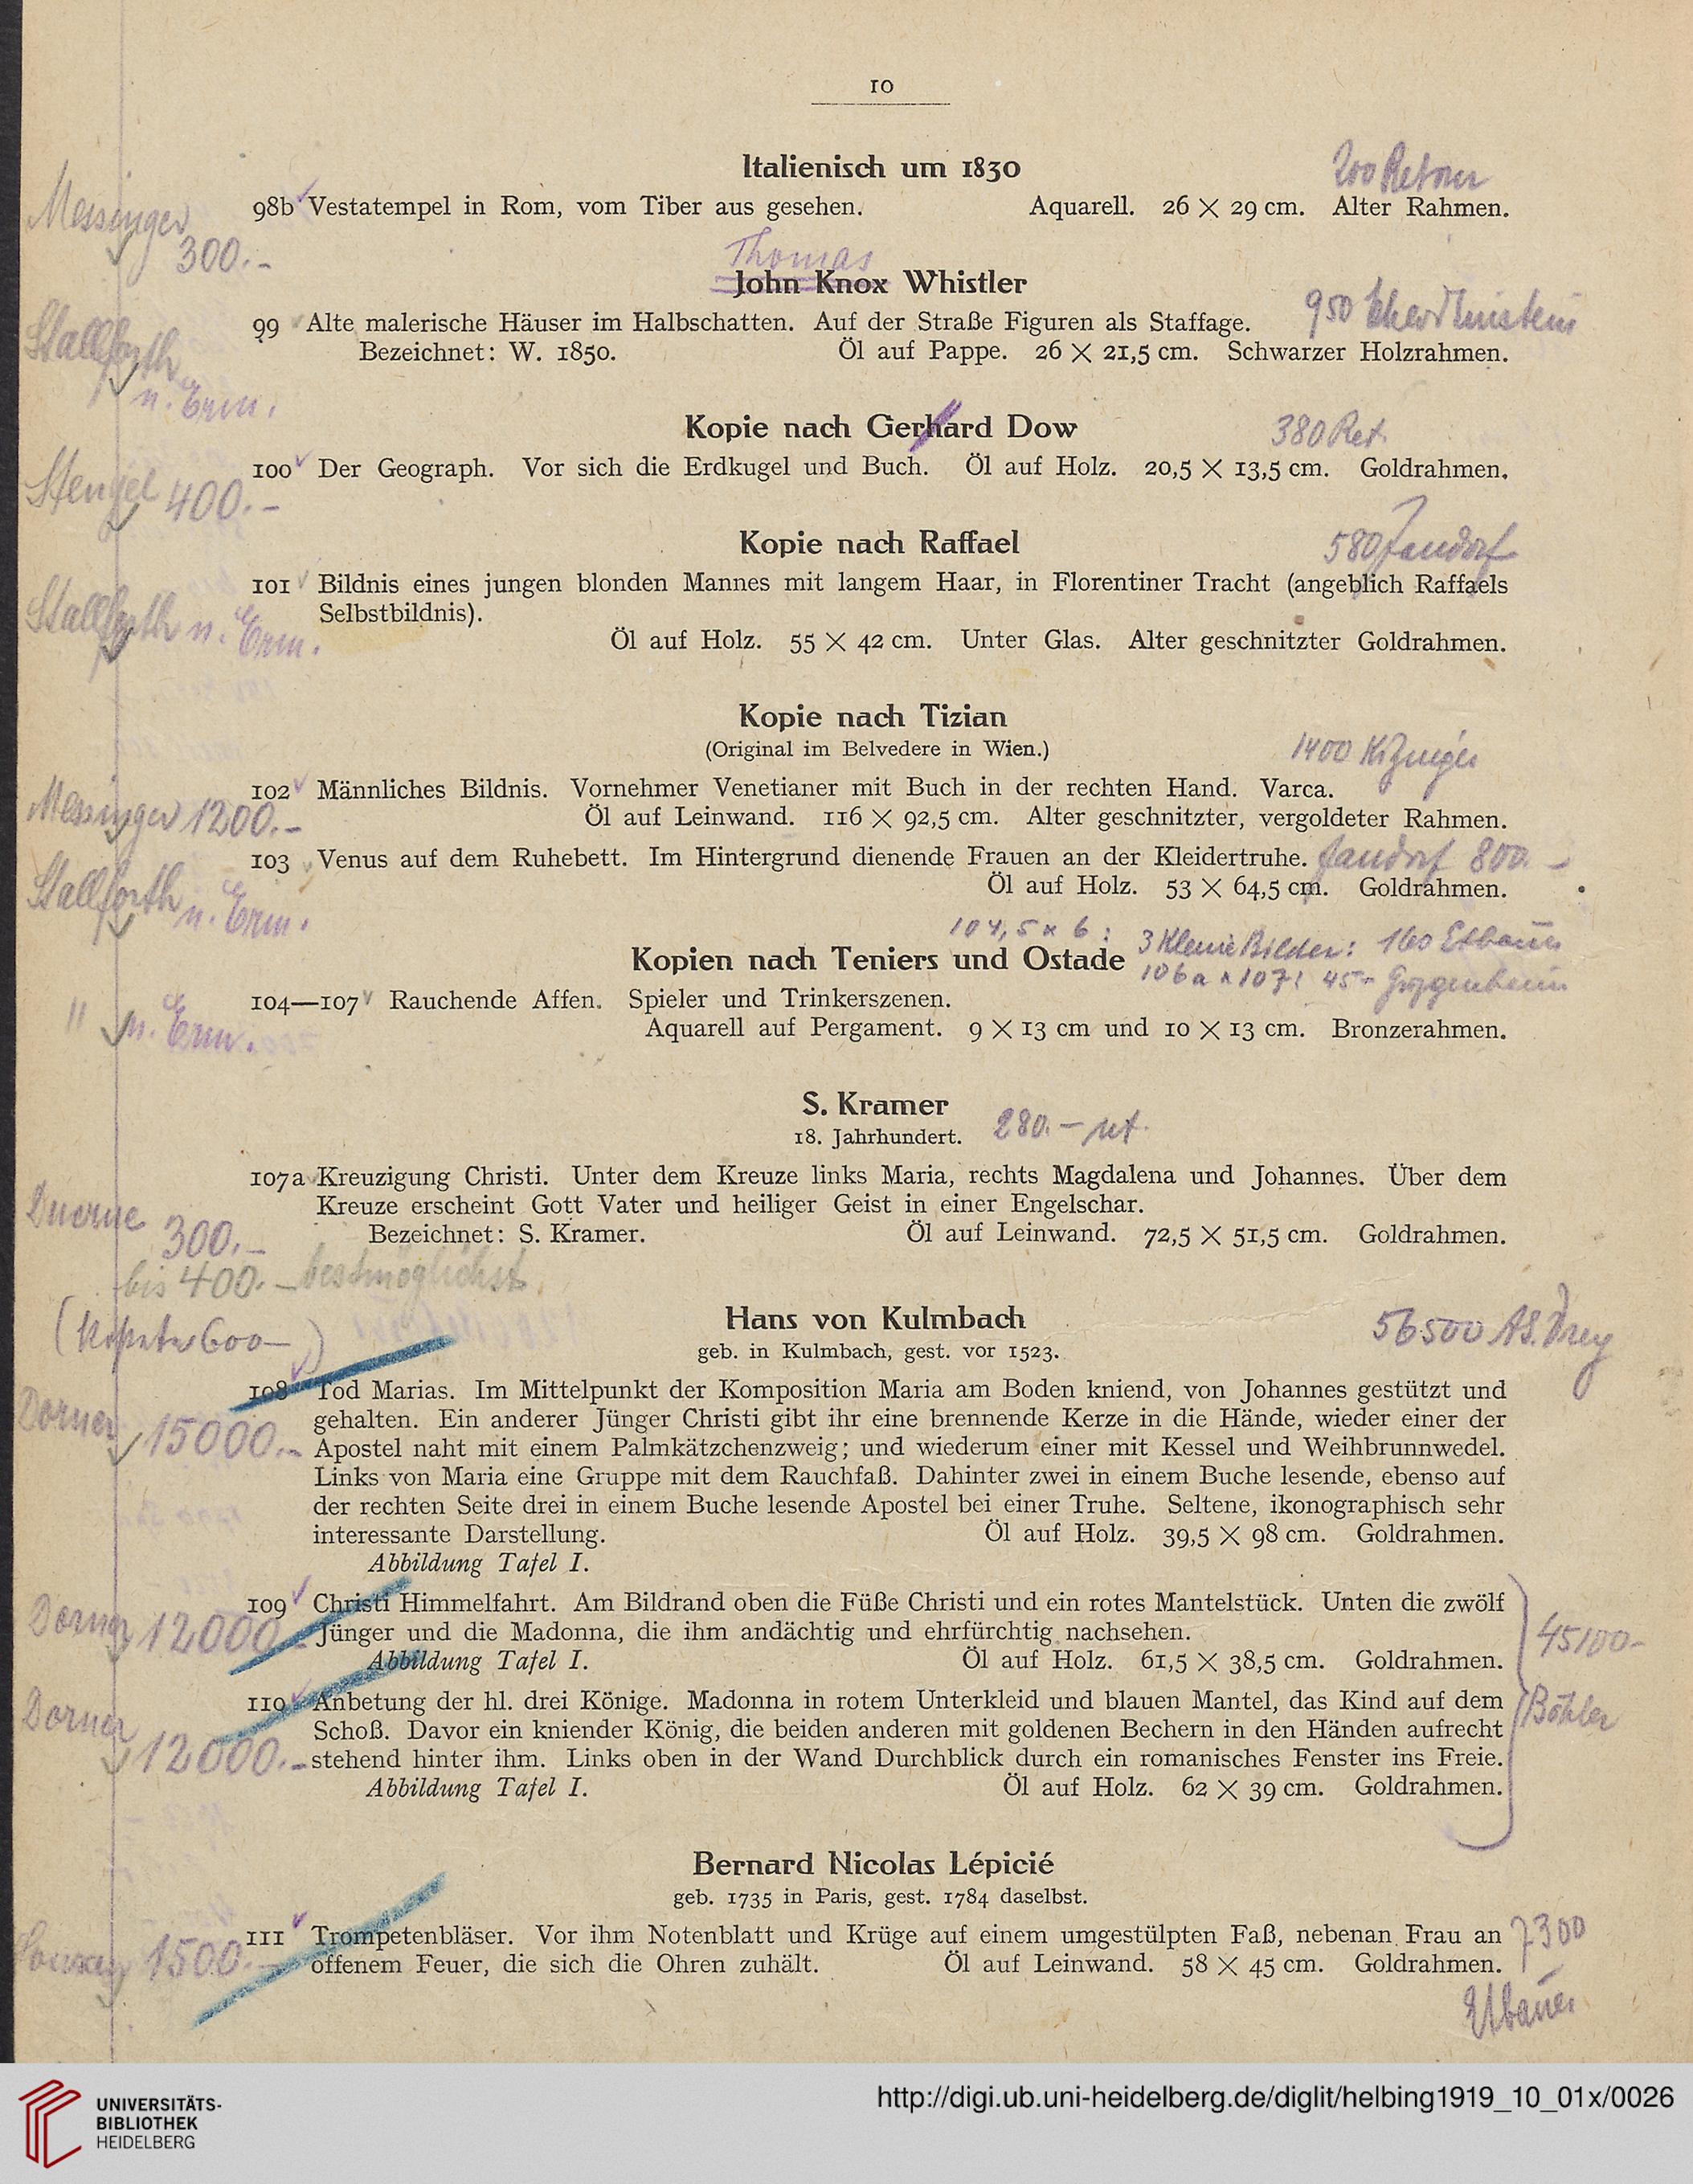 10
Italienisch um 1830
200 Retour
Messinger
98b Vestatempel in Rom, vom Tiber aus gesehen. Aquarell. 26 × 29 cm. Alter Rahmen.
300.-
Thomas
John Knox Whistler
950
Stallforth
99 Alte malerische Häuser im Halbschatten. Auf der Straße Figuren als Staffage.
Bezeichnet: W. 1850. Öl auf Pappe. 26 × 21,5 cm. Schwarzer Holzrahmen.
n. Erm.
Kopie nach Gerhard Dow
380 Ret.
Stengel 400.-
100 Der Geograph. Vor sich die Erdkugel und Buch. Öl auf Holz. 20,5 × 13,5 cm. Goldrahmen.
Kopie nach Raffael
580 Jandorf
101 Bildnis eines jungen blonden Mannes mit langem Haar, in Florentiner Tracht (angeblich Raffaels
Selbstbildnis).
Stallforth n. Erm.
Öl auf Holz. 55 × 42 cm. Unter Glas. Alter geschnitzter Goldrahmen.
Kopie nach Tizian
(Original im Belvedere in Wien.)
1400
102 Männliches Bildnis. Vornehmer Venetianer mit Buch in der rechten Hand. Varca.
Messinger 1200.-
Öl auf Leinwand. 116 × 92,5 cm. Alter geschnitzter, vergoldeter Rahmen.
103 Venus auf dem Ruhebett. Im Hintergrund dienende Frauen an der Kleidertruhe. Jandorf 800.-
Stallforth n. Erm.
Öl auf Holz. 53 × 64,5 cm. Goldrahmen.
104, 5 x 6: 3 kleine Bilder: 160
Kopien nach Teniers und Ostade
106a x 107: 45- Guggenheim
104—107 Rauchende Affen. Spieler und Trinkerszenen.
" n. Erm.
Aquarell auf Pergament. 9 × 13 cm und 10 × 13 cm. Bronzerahmen.
S. Kramer
18. Jahrhundert.
280.- ret.
107a Kreuzigung Christi. Unter dem Kreuze links Maria, rechts Magdalena und Johannes. Über dem
Kreuze erscheint Gott Vater und heiliger Geist in einer Engelschar.
300.-
Bezeichnet: S. Kramer. Öl auf Leinwand. 72,5 × 51,5 cm. Goldrahmen.
bis 400.- bestmöglichst
Hans von Kulmbach
600-
56500 AS. Drey
geb. in Kulmbach, gest. vor 1523.
108 Tod Marias. Im Mittelpunkt der Komposition Maria am Boden kniend, von Johannes gestützt und
gehalten. Ein anderer Jünger Christi gibt ihr eine brennende Kerze in die Hände, wieder einer der
Dorner 15000.-
Apostel naht mit einem Palmkätzchenzweig; und wiederum einer mit Kessel und Weihbrunnwedel.
Links von Maria eine Gruppe mit dem Rauchfaß. Dahinter zwei in einem Buche lesende, ebenso auf
der rechten Seite drei in einem Buche lesende Apostel bei einer Truhe. Seltene, ikonographisch sehr
interessante Darstellung. Öl auf Holz. 39,5 × 98 cm. Goldrahmen.
Abbildung Tafel I.
109 Christi Himmelfahrt. Am Bildrand oben die Füße Christi und ein rotes Mantelstück. Unten die zwölf
Dorner 12000.-
Jünger und die Madonna, die ihm andächtig und ehrfürchtig nachsehen.
45100-
Abbildung Tafel I. Öl auf Holz. 61,5 × 38,5 cm. Goldrahmen.
110 Anbetung der hl. drei Könige. Madonna in rotem Unterkleid und blauen Mantel, das Kind auf dem
Böhler
Dorner
Schoß. Davor ein kniender König, die beiden anderen mit goldenen Bechern in den Händen aufrecht
12000.-
stehend hinter ihm. Links oben in der Wand Durchblick durch ein romanisches Fenster ins Freie.
Abbildung Tafel I. Öl auf Holz. 62 × 39 cm. Goldrahmen.
Bernard Nicolas Lépicié
geb. 1735 in Paris, gest. 1784 daselbst.
111 Trompetenbläser. Vor ihm Notenblatt und Krüge auf einem umgestülpten Faß, nebenan Frau an
7300
1500.-
offenem Feuer, die sich die Ohren zuhält. Öl auf Leinwand. 58 × 45 cm. Goldrahmen.
UNIVERSITÄTS-
BIBLIOTHEK
HEIDELBERG
http://digi.ub.uni-heidelberg.de/diglit/helbing1919_10_01x/0026